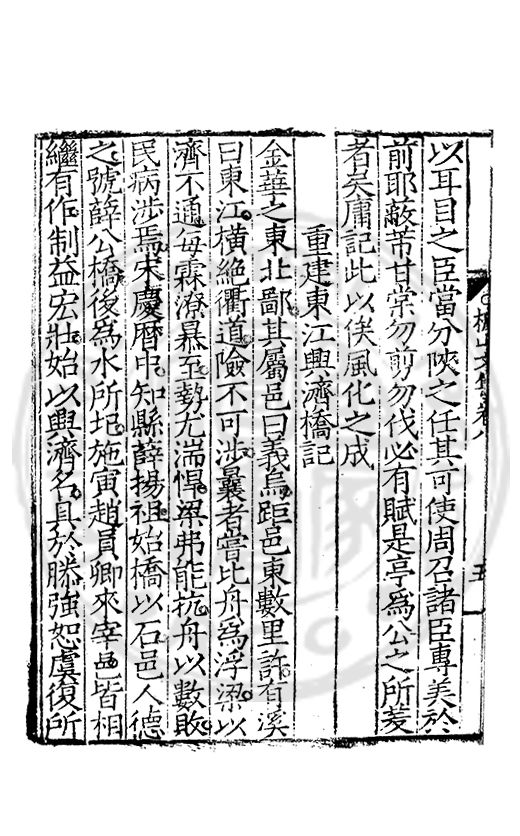 以耳目之臣當分陝之任其可使周召諸臣專美於
前耶蔽芾甘棠勿剪勿伐必有賦是亭為公之所茇
者吳庸記此以俟風化之成
重建東江興濟橋記
金華之東北鄙其屬邑曰義烏距邑東數里許有溪
曰東江橫絕衢道險不可涉曩者嘗比舟為浮梁以
濟不通每霖潦暴至勢尤湍悍梁弗能抗舟以數敗
民病涉焉宋慶曆中知縣薛揚祖始橋以石邑人德
之號薛公橋後為水所圯施寅趙員卿來宰邑皆相
繼有作制益宏壯始以興濟名具於滕強恕虞復所
山文集卷八
五